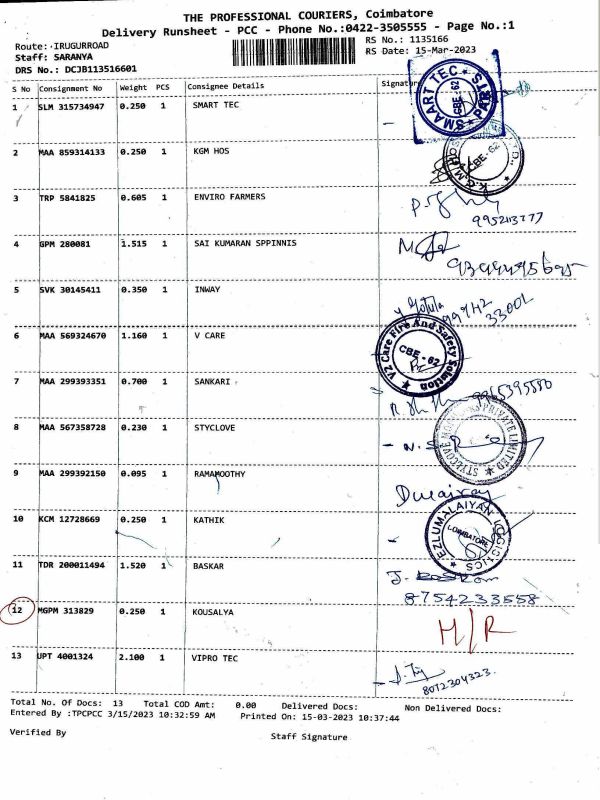 THE PROFESSIONAL COURIERS, Coimbatore
Delivery Runsheet - PCC - Phone No.:0422-3505555 - Page No.:1
Route: IRUGURROAD
RS No.: 1135166
Staff: SARANYA
RS Date: 15-Mar-2023
DRS No.: DCJB113516601
S No Consignment No Weight PCS Consignee Details Signatur
1 SLM 315734947 0.250 1 SMART TEC
SMAART TEC PARTS CBE-62
2 MAA 859314133 0.250 1 KGM HOS
CBE-62
3 TRP 5841825 0.605 1 ENVIRO FARMERS
4 GPM 280081 1.515 1 SAI KUMARAN SPPINNIS
5 SVK 30145411 0.350 1 INWAY
33002
6 MAA 569324670 1.160 1 V CARE
VZ Care Fire And Safety Solution CBE-62
7 MAA 299393351 0.700 1 SANKARI
8 MAA 567358728 0.230 1 STYCLOVE
PRIVATE LIMITED
9 MAA 299392150 0.095 1 RAMAMOOTHY
10 KCM 12728669 0.250 1 KATHIK
EZLUMALAIYAN LOGISTICS COIMBATORE
11 TDR 200011494 1.520 1 BASKAR
8754233558
12 MGPM 313829 0.250 1 KOUSALYA
M/R
13 UPT 4001324 2.100 1 VIPRO TEC
8072304323
Total No. Of Docs: 13 Total COD Amt: 0.00 Delivered Docs: Non Delivered Docs:
Entered By :TPCPCC 3/15/2023 10:32:59 AM Printed On: 15-03-2023 10:37:44
Verified By
Staff Signature